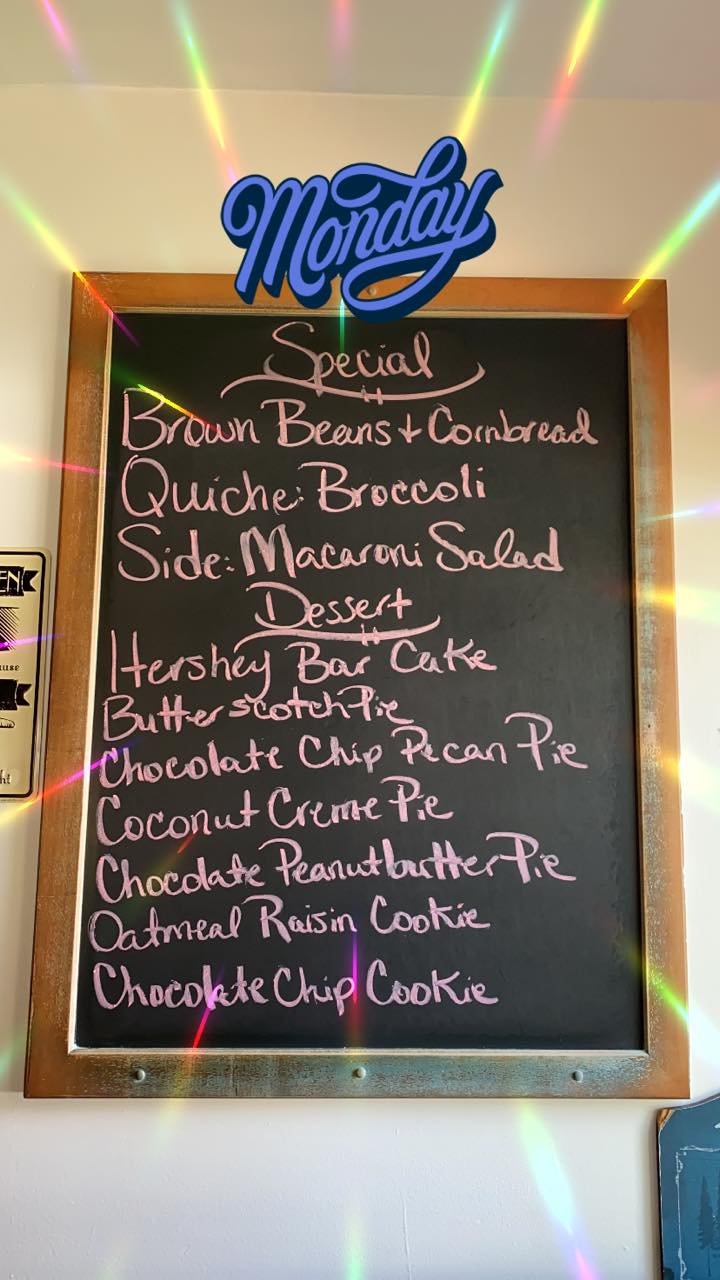 Monday
Special
Brown Beans + Cornbread
Quiche: Broccoli
Side: Macaroni Salad
Dessert
Hershey Bar Cake
Butterscotch Pie
Chocolate Chip Pecan Pie
Coconut Creme Pie
Chocolate Peanutbutter Pie
Oatmeal Raisin Cookie
Chocolate Chip Cookie